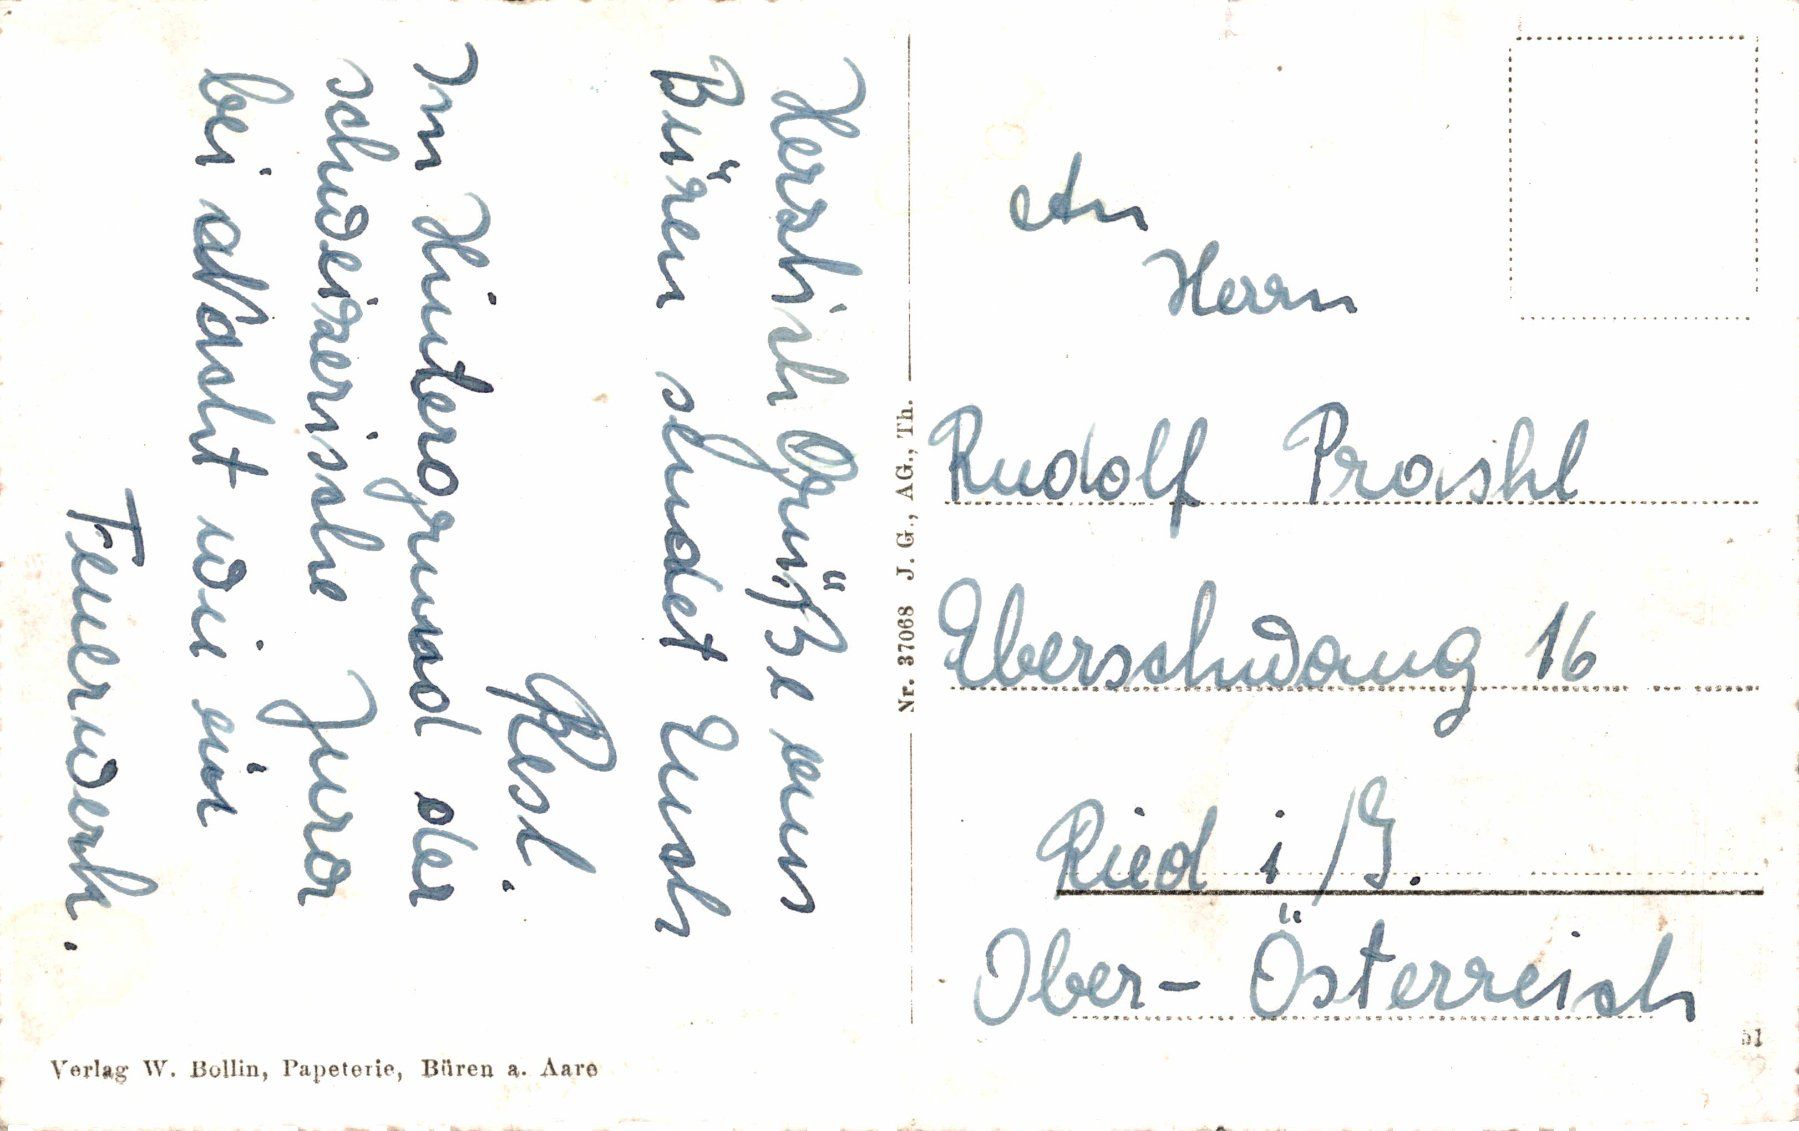 Herzlich Grüße aus
Büren sendet Euch
Resl.
Im Hintergrund der
schweizerische Jura
bei  wie ein
Feuerwerk.
Nr. 37068 J. G., AG., Th.
An
Herrn
Rudolf Praschl
Eberschwang 16
Ried i/I.
Ober-Österreich
51
Verlag W. Bollin, Papeterie, Büren a. Aare